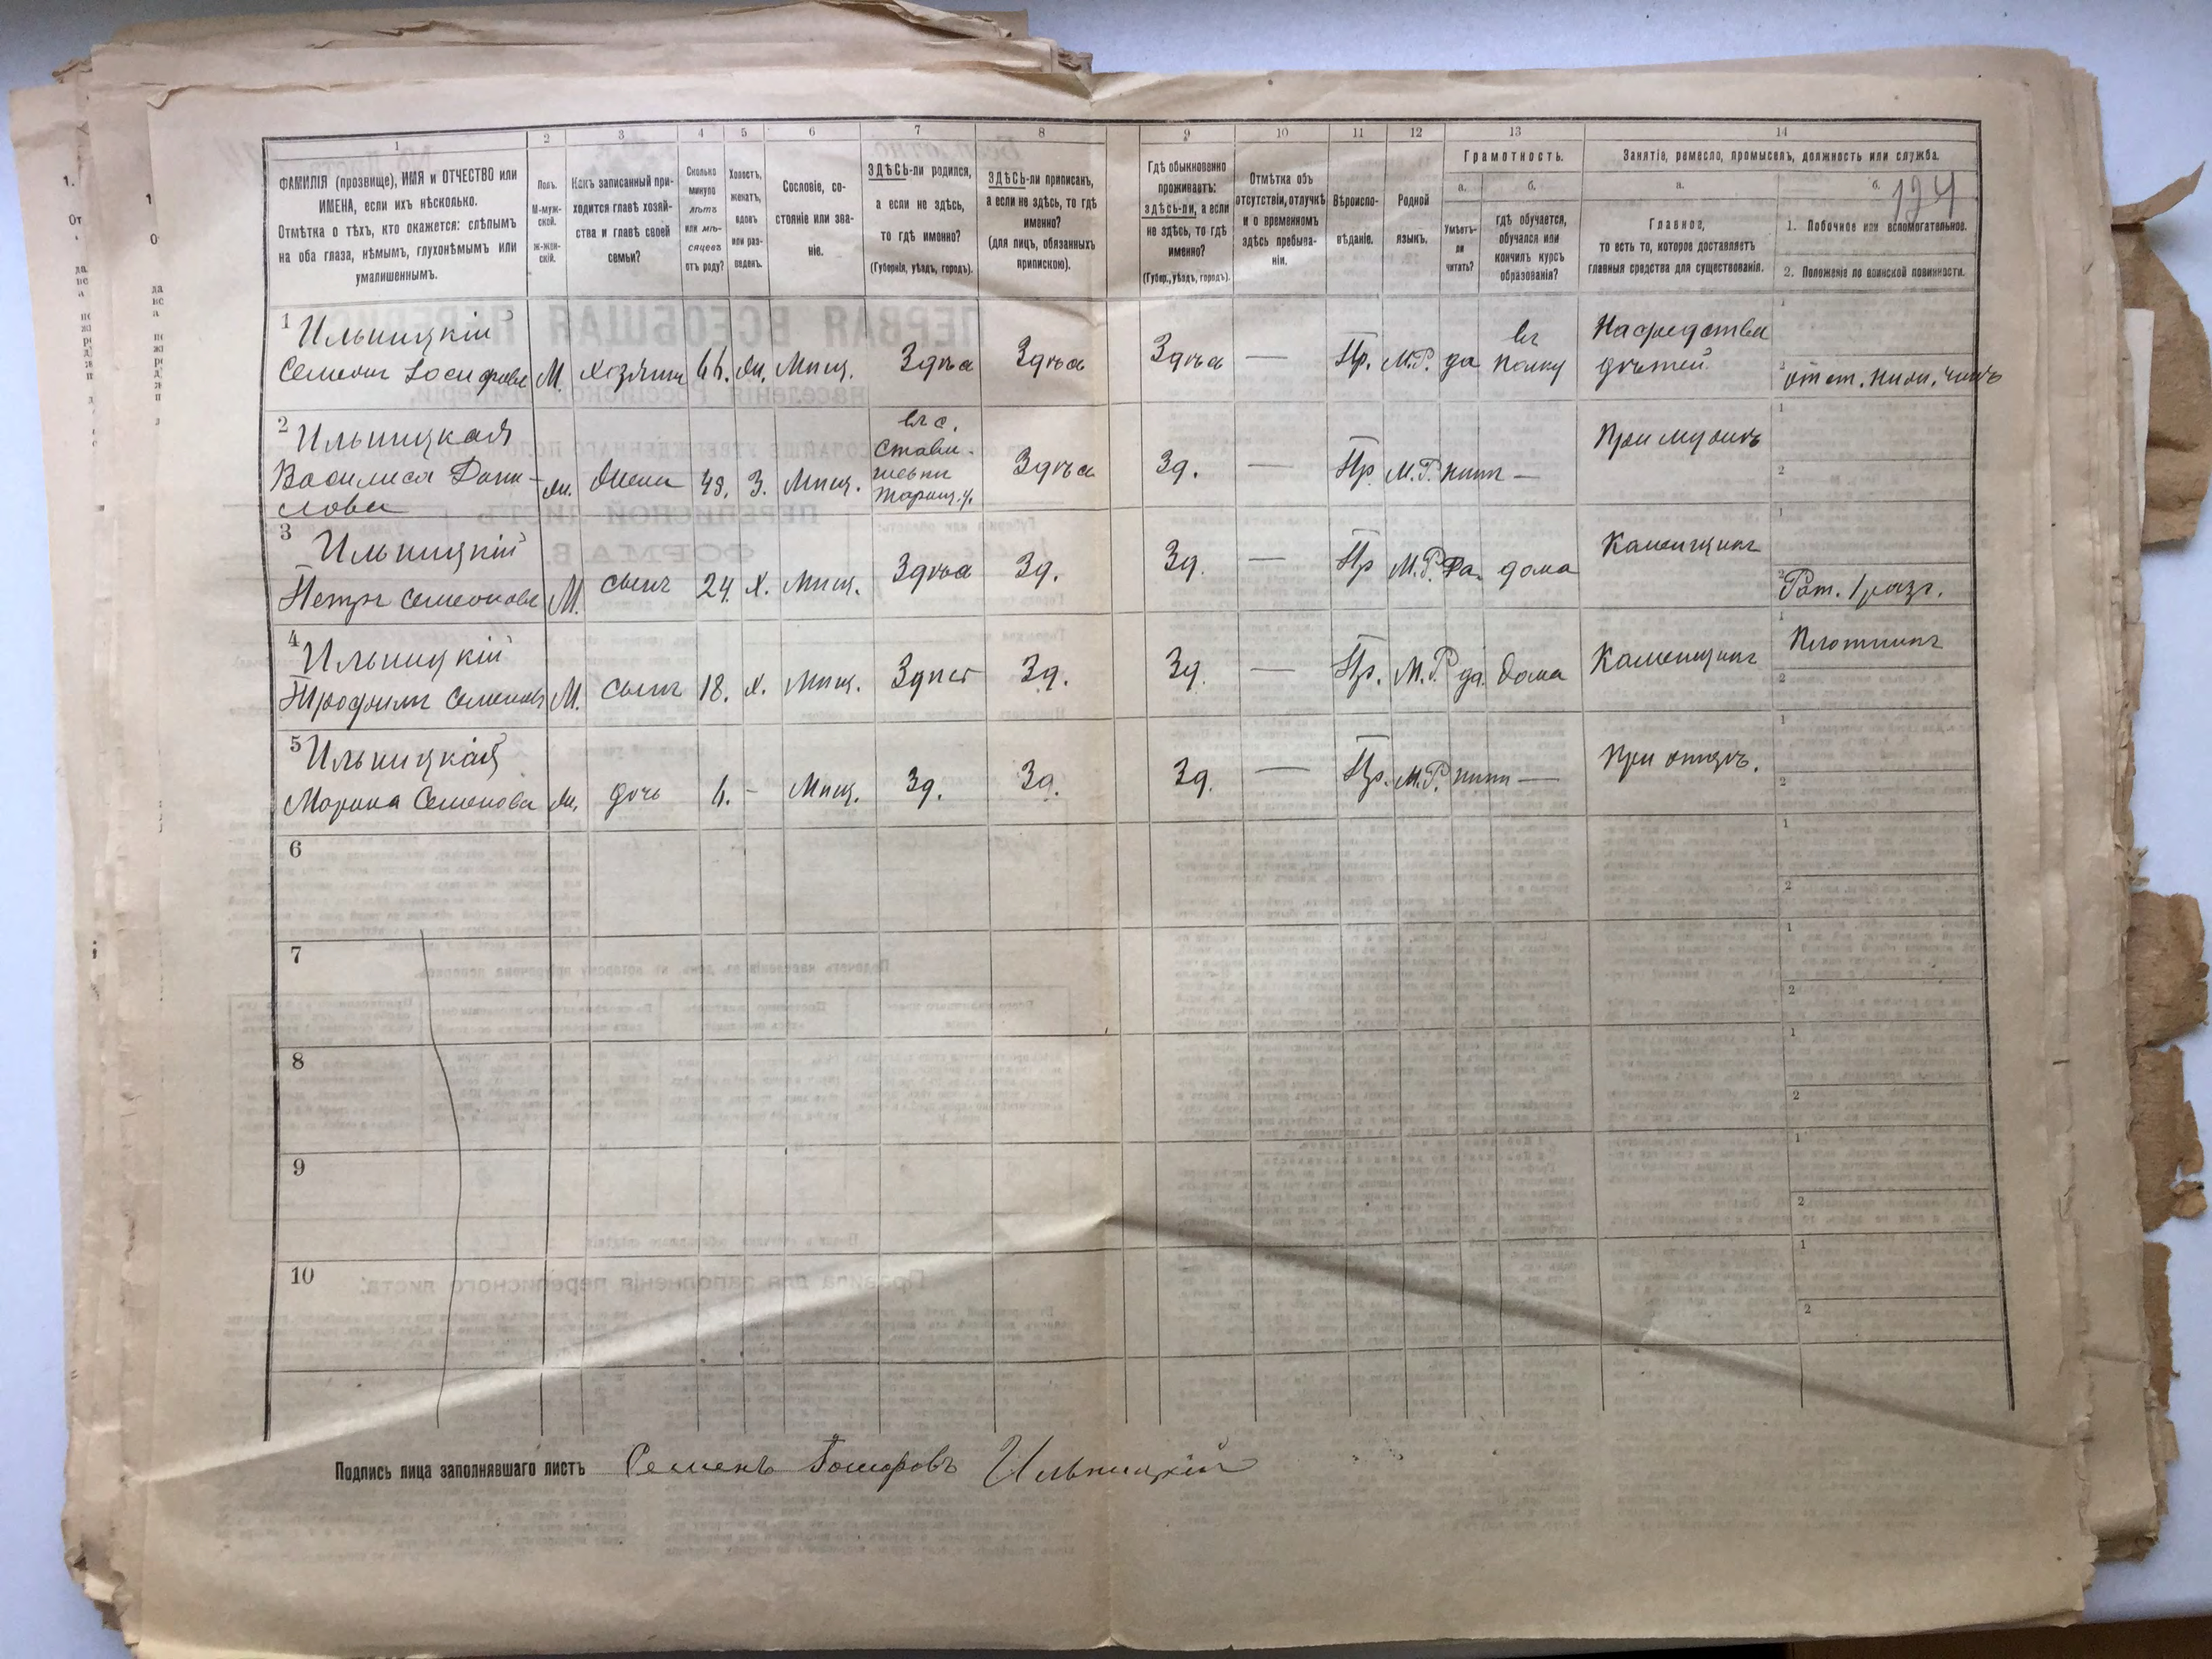 1
ФАМИЛІЯ (прозвище), ИМЯ и ОТЧЕСТВО или
ИМЕНА, если ихъ нѣсколько.
Отмѣтка о тѣхъ, кто окажется: слѣпымъ
на оба глаза, нѣмымъ, глухонѣмымъ или
умалишеннымъ.
2
Полъ.
М-муж-
ской.
Ж-жен-
скій.
3
Какъ записанный при-
ходится главѣ хозяй-
ства и главѣ своей
семьи?
4
Сколько
минуло
лѣтъ
или мѣ-
сяцевъ
отъ роду?
5
Холостъ,
женатъ,
вдовъ
или раз-
веденъ.
6
Сословіе, со-
стояніе или зва-
ніе.
7
ЗДѢСЬ-ли родился,
а если не здѣсь,
то гдѣ именно?
(Губернія, уѣздъ, городъ).
8
ЗДѢСЬ-ли приписанъ,
а если не здѣсь, то гдѣ
именно?
(для лицъ, обязанныхъ
припискою).
9
Гдѣ обыкновенно
проживаетъ:
здѣсь-ли, а если
не здѣсь, то гдѣ
именно?
(Губер., уѣздъ, городъ).
10
Отмѣтка объ
отсутствіи, отлучкѣ
и о временномъ
здѣсь пребыва-
ніи.
11
Вѣроиспо-
вѣданіе.
12
Родной
языкъ.
13
Грамотность.
а.
Умѣетъ-
ли
читать?
б.
гдѣ обучается,
обучался или
кончилъ курсъ
образованія?
14
Занятіе, ремесло, промыселъ, должность или служба.
а.
Главное,
то есть то, которое доставляетъ
главныя средства для существованія.
б.
194
1. Побочное или вспомогательное.
2. Положеніе по воинской повинности.
1 Ильницкій
Семенъ Іосифовъ М. хозяинъ 66. Жн. Мѣщ. Здѣсь Здѣсь Здѣсь — Пр. М.Р. да въ полку На средства дѣтей
1
2 отст. нижн. чинъ
2 Ильницкая
Василиса Дани-
лова Ж. Жена 49. З. Мѣщ. въ с.
Стави-
Таращ. у. Здѣсь Зд. — Пр. М.Р. нѣтъ — При мужѣ
1
2
3 Ильницкій
Петръ Семеновъ М. сынъ 24. Х. Мѣщ. Здѣсь Зд. Зд. — Пр М.Р. да. дома Каменщикъ
1
2 Рат. 1 разр.
4 Ильницкій
Трофимъ Семеновъ М. сынъ 18. х. Мѣщ. Здѣсь Зд. Зд. — Пр. М.Р. да. дома Каменщикъ
1 Плотникъ
2
5 Ильницкая
Марина Семенова Ж. дочь 6. - Мѣщ. Зд. Зд. Зд. — Пр. М.Р. нѣтъ — При отцѣ.
1
2
6
1
2
7
1
2
8
1
2
9
1
2
10
1
2
Подпись лица заполнявшаго листъ Семенъ Ильницкій